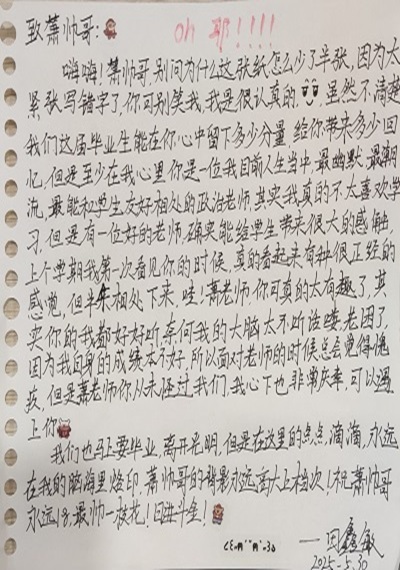 致萧帅哥:
oh 耶!!!!
嗨嗨!萧帅哥,别问为什么这张纸怎么少了半张,因为太
紧张写错字了,你可别笑我,我是很认真的,虽然不清楚
我们这届毕业生能在你心中留下多少分量,给你带来多少回
忆,但是至少在我心里你是一位我目前人生当中,最幽默,最潮
流,最能和学生友好相处的政治老师,其实我真的不太喜欢学
习,但是有一位好的老师,确实能给学生带来很大的感触,
上个学期我第一次看见你的时候,真的看起来有种很正经的
感觉,但半年相处下来,哇!萧老师你可真的太有趣了,其
实你的我都好好听,奈何我的大脑太不听话喽,老困了,
因为我自身的成绩本不好,所以面对老师的时候总会觉得愧
疚,但是萧老师你从未怪过我们,我心下也非常庆幸,可以遇
上你
我们也马上要毕业,离开光明,但是在这里的点点,滴滴,永远
在我的脑海里烙印,萧帅哥的背影永远高大上档次!祝萧帅哥
永远18,最帅一枝花!日进斗金!
—田鑫敏
2025-5.30